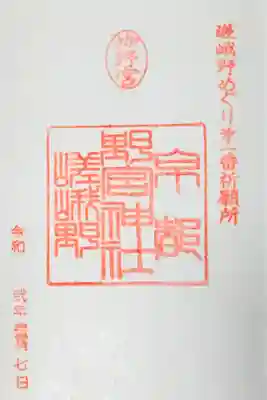 嵯峨野めぐり第一番祈願所
京都
野宮神社
嵯峨野
令和 弐年 七日